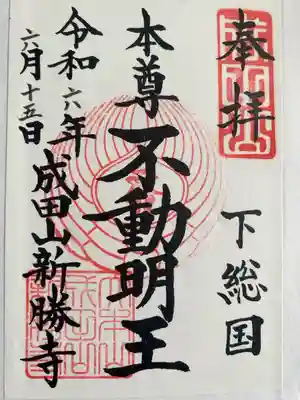 奉拝
下総国
本尊
不動明王
令和六年
六月十五日
成田山新勝寺